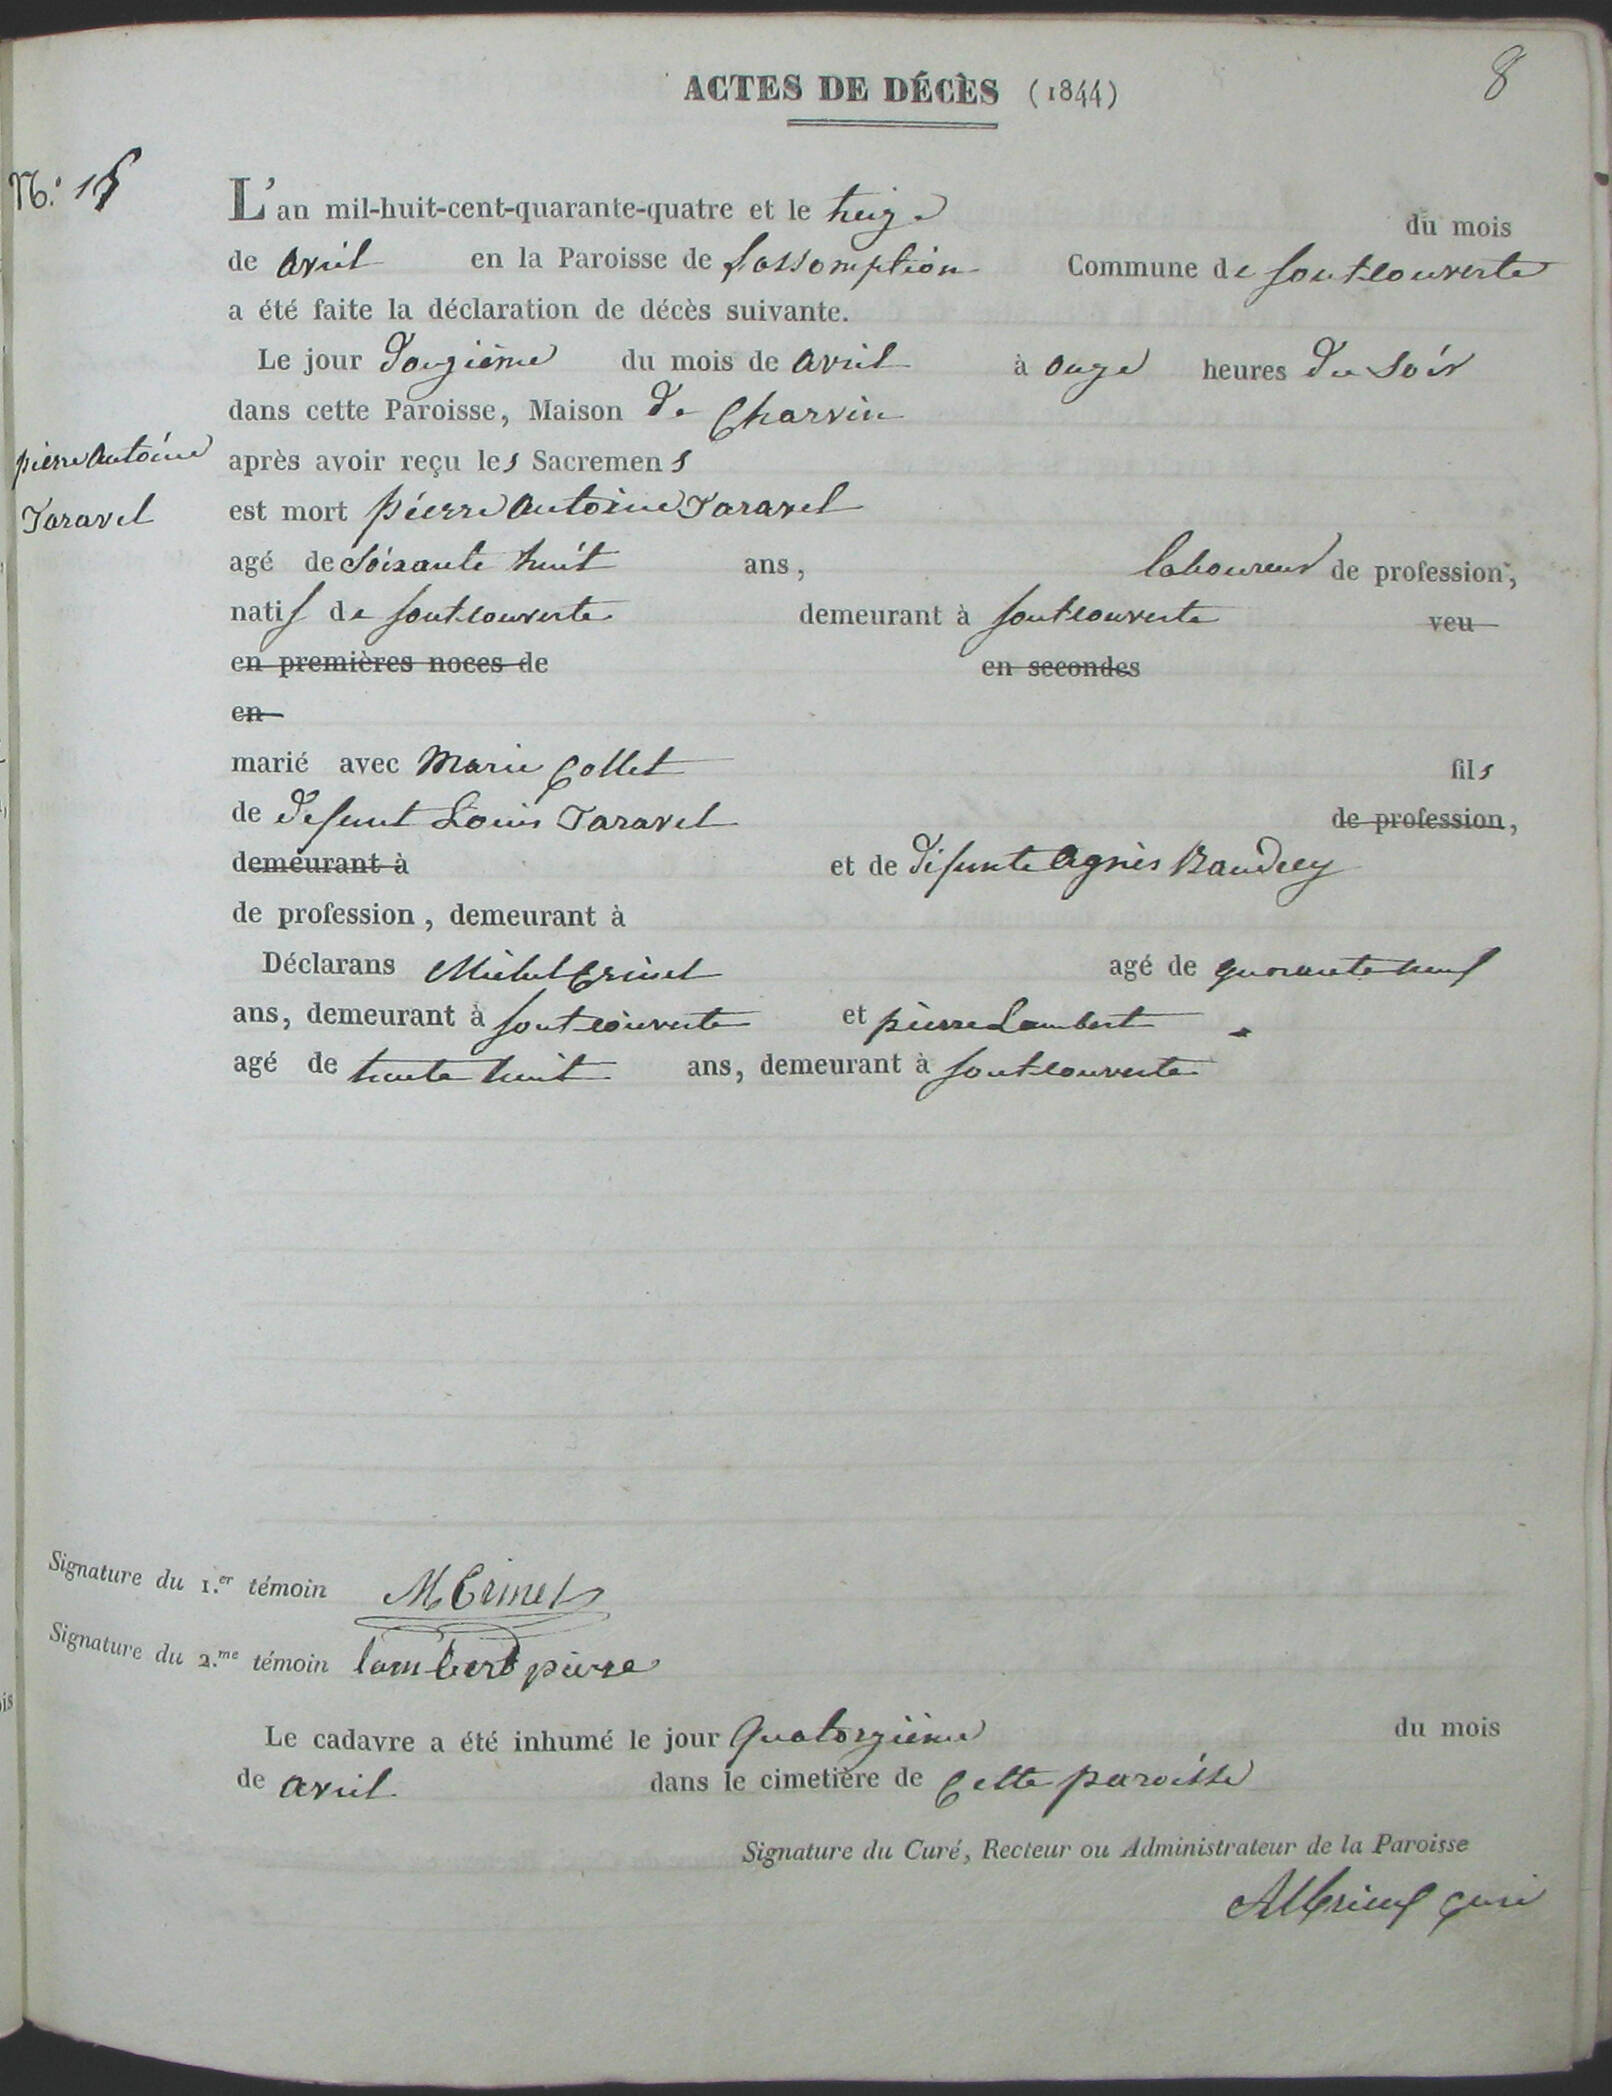 8
ACTES DE DÉCÈS (1844)
N.º 15
L'an mil-huit-cent-quarante-quatre et le treize du mois
de avril en la Paroisse de Lassomption Commune de fontcouverte
a été faite la déclaration de décès suivante.
Le jour douzième du mois de avril à onze heures du soir
dans cette Paroisse, Maison de Charvin
pierre antoine
Taravel
après avoir reçu les Sacremens
est mort pierre antoine Taravel
agé de soixante huit ans, laboureur de profession,
natif de fontcouverte demeurant à fontcouverte veu
en premières noces de en secondes
en
marié avec Marie Collet fils
de defunt Louis Taravel de profession,
demeurant à et de défunte agnès Baudrey
de profession, demeurant à
Déclarans Michel agé de quarante neuf
ans, demeurant à fontcouverte et pierre Lambert
agé de trente huit ans, demeurant à fontcouverte
Signature du 1.er témoin M
Signature du 2.me témoin lambert pierre
Le cadavre a été inhumé le jour quatorzième du mois
de avril dans le cimetière de cette paroisse
Signature du Curé, Recteur ou Administrateur de la Paroisse
curé